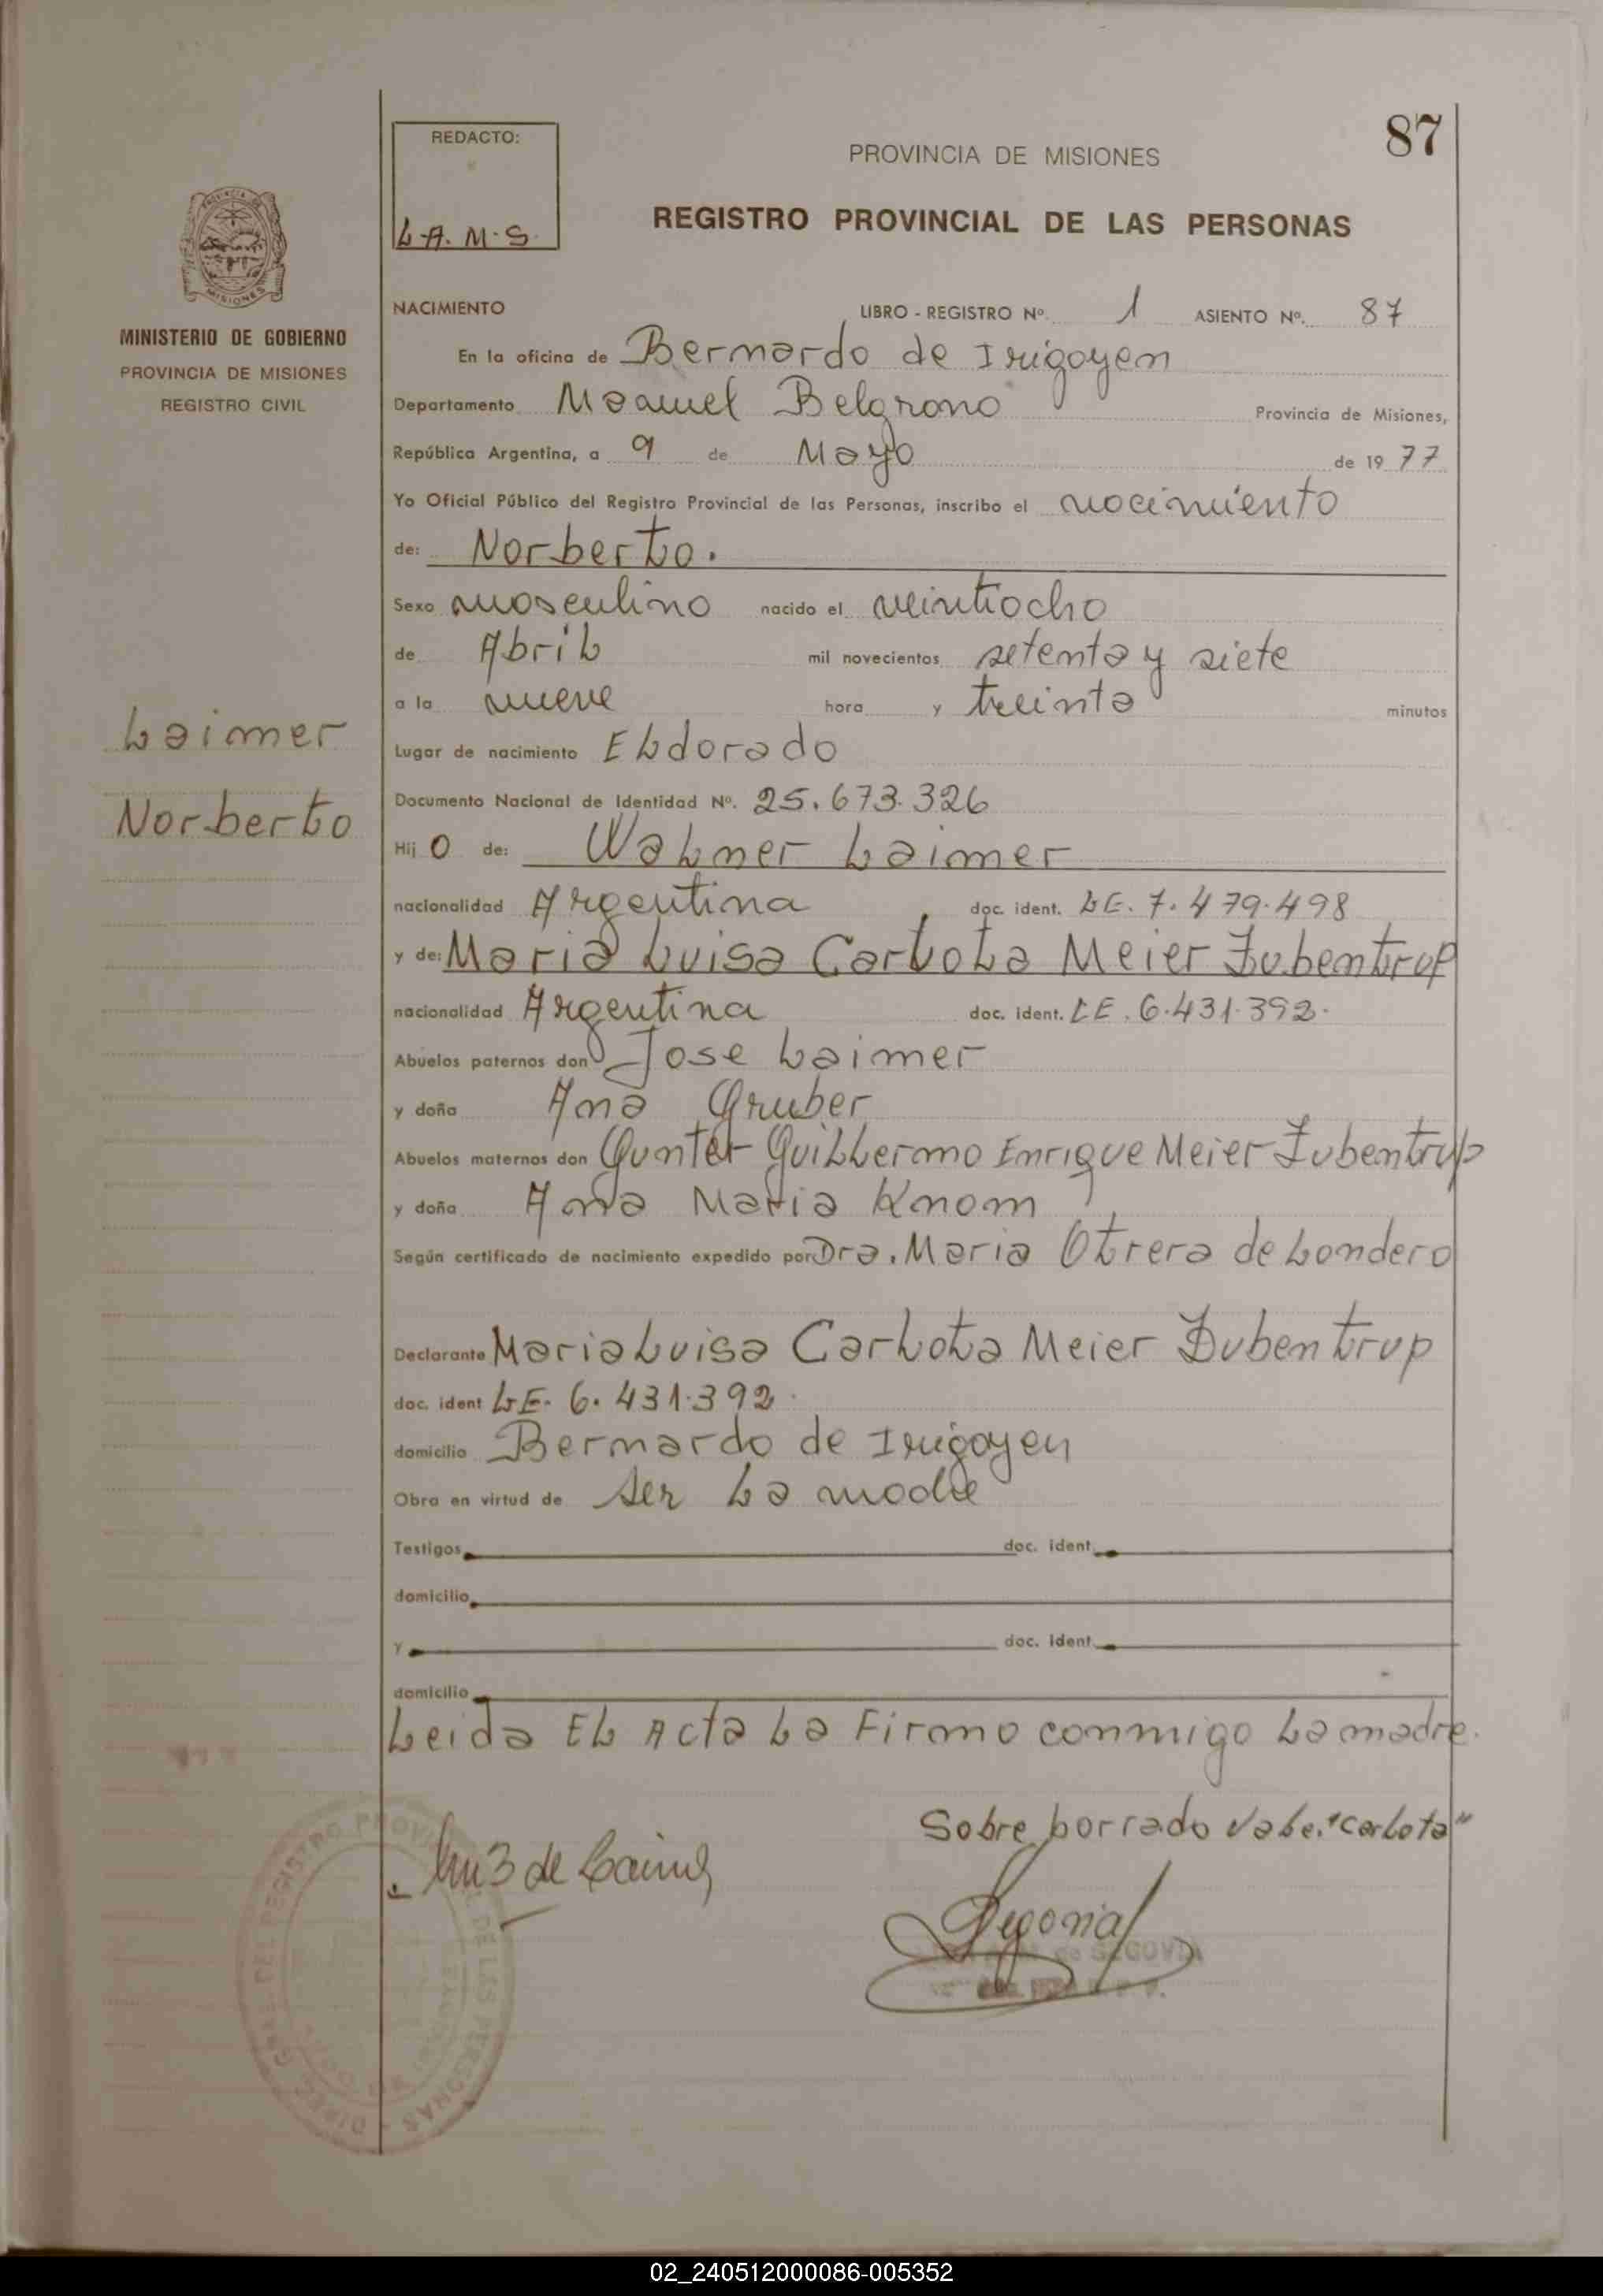 87
REDACTO:
L.A.M.S.
PROVINCIA DE MISIONES
REGISTRO PROVINCIAL DE LAS PERSONAS
MINISTERIO DE GOBIERNO
PROVINCIA DE MISIONES
REGISTRO CIVIL
NACIMIENTO LIBRO - REGISTRO Nº. 1 ASIENTO Nº. 87
En la oficina de Bernardo de Irigoyen
Departamento Manuel Belgrano Provincia de Misiones,
República Argentina, a 9 de Mayo de 1977
Yo Oficial Público del Registro Provincial de las Personas, inscribo el nacimiento
de: Norberto.
Sexo masculino nacido el veintiocho
de Abril mil novecientos setenta y siete
a la nueve hora y treinta minutos
Laimer
Norberto
Lugar de nacimiento Eldorado
Documento Nacional de Identidad Nº. 25.673.326
Hij o de: Walner Laimer
nacionalidad Argentina doc. ident. LE. 7.479.498
y de: Maria Luisa Carlota Meier Zubentrup
nacionalidad Argentina doc. ident. LE. 6.431.392.
Abuelos paternos don Jose Laimer
y doña Ana Gruber
Abuelos maternos don Gunter Guillermo Enrique Meier Zubentrup
y doña Ana Maria Knom
Según certificado de nacimiento expedido por Dra. Maria Otrera de Londero
Declarante Maria Luisa Carlota Meier Zubentrup
doc. ident LE. 6.431.392.
domicilio Bernardo de Irigoyen
Obra en virtud de ser la madre
Testigos doc. ident.
domicilio
y doc. ident.
domicilio
Leida El Acta La Firma conmigo La madre.
Sobre borrado Vale. "Carlota"
de
Segovia
de SEGOVIA
DIREC. GRAL. DEL REGISTRO PROVINCIAL DE LAS PERSONAS
02_240512000086-005352